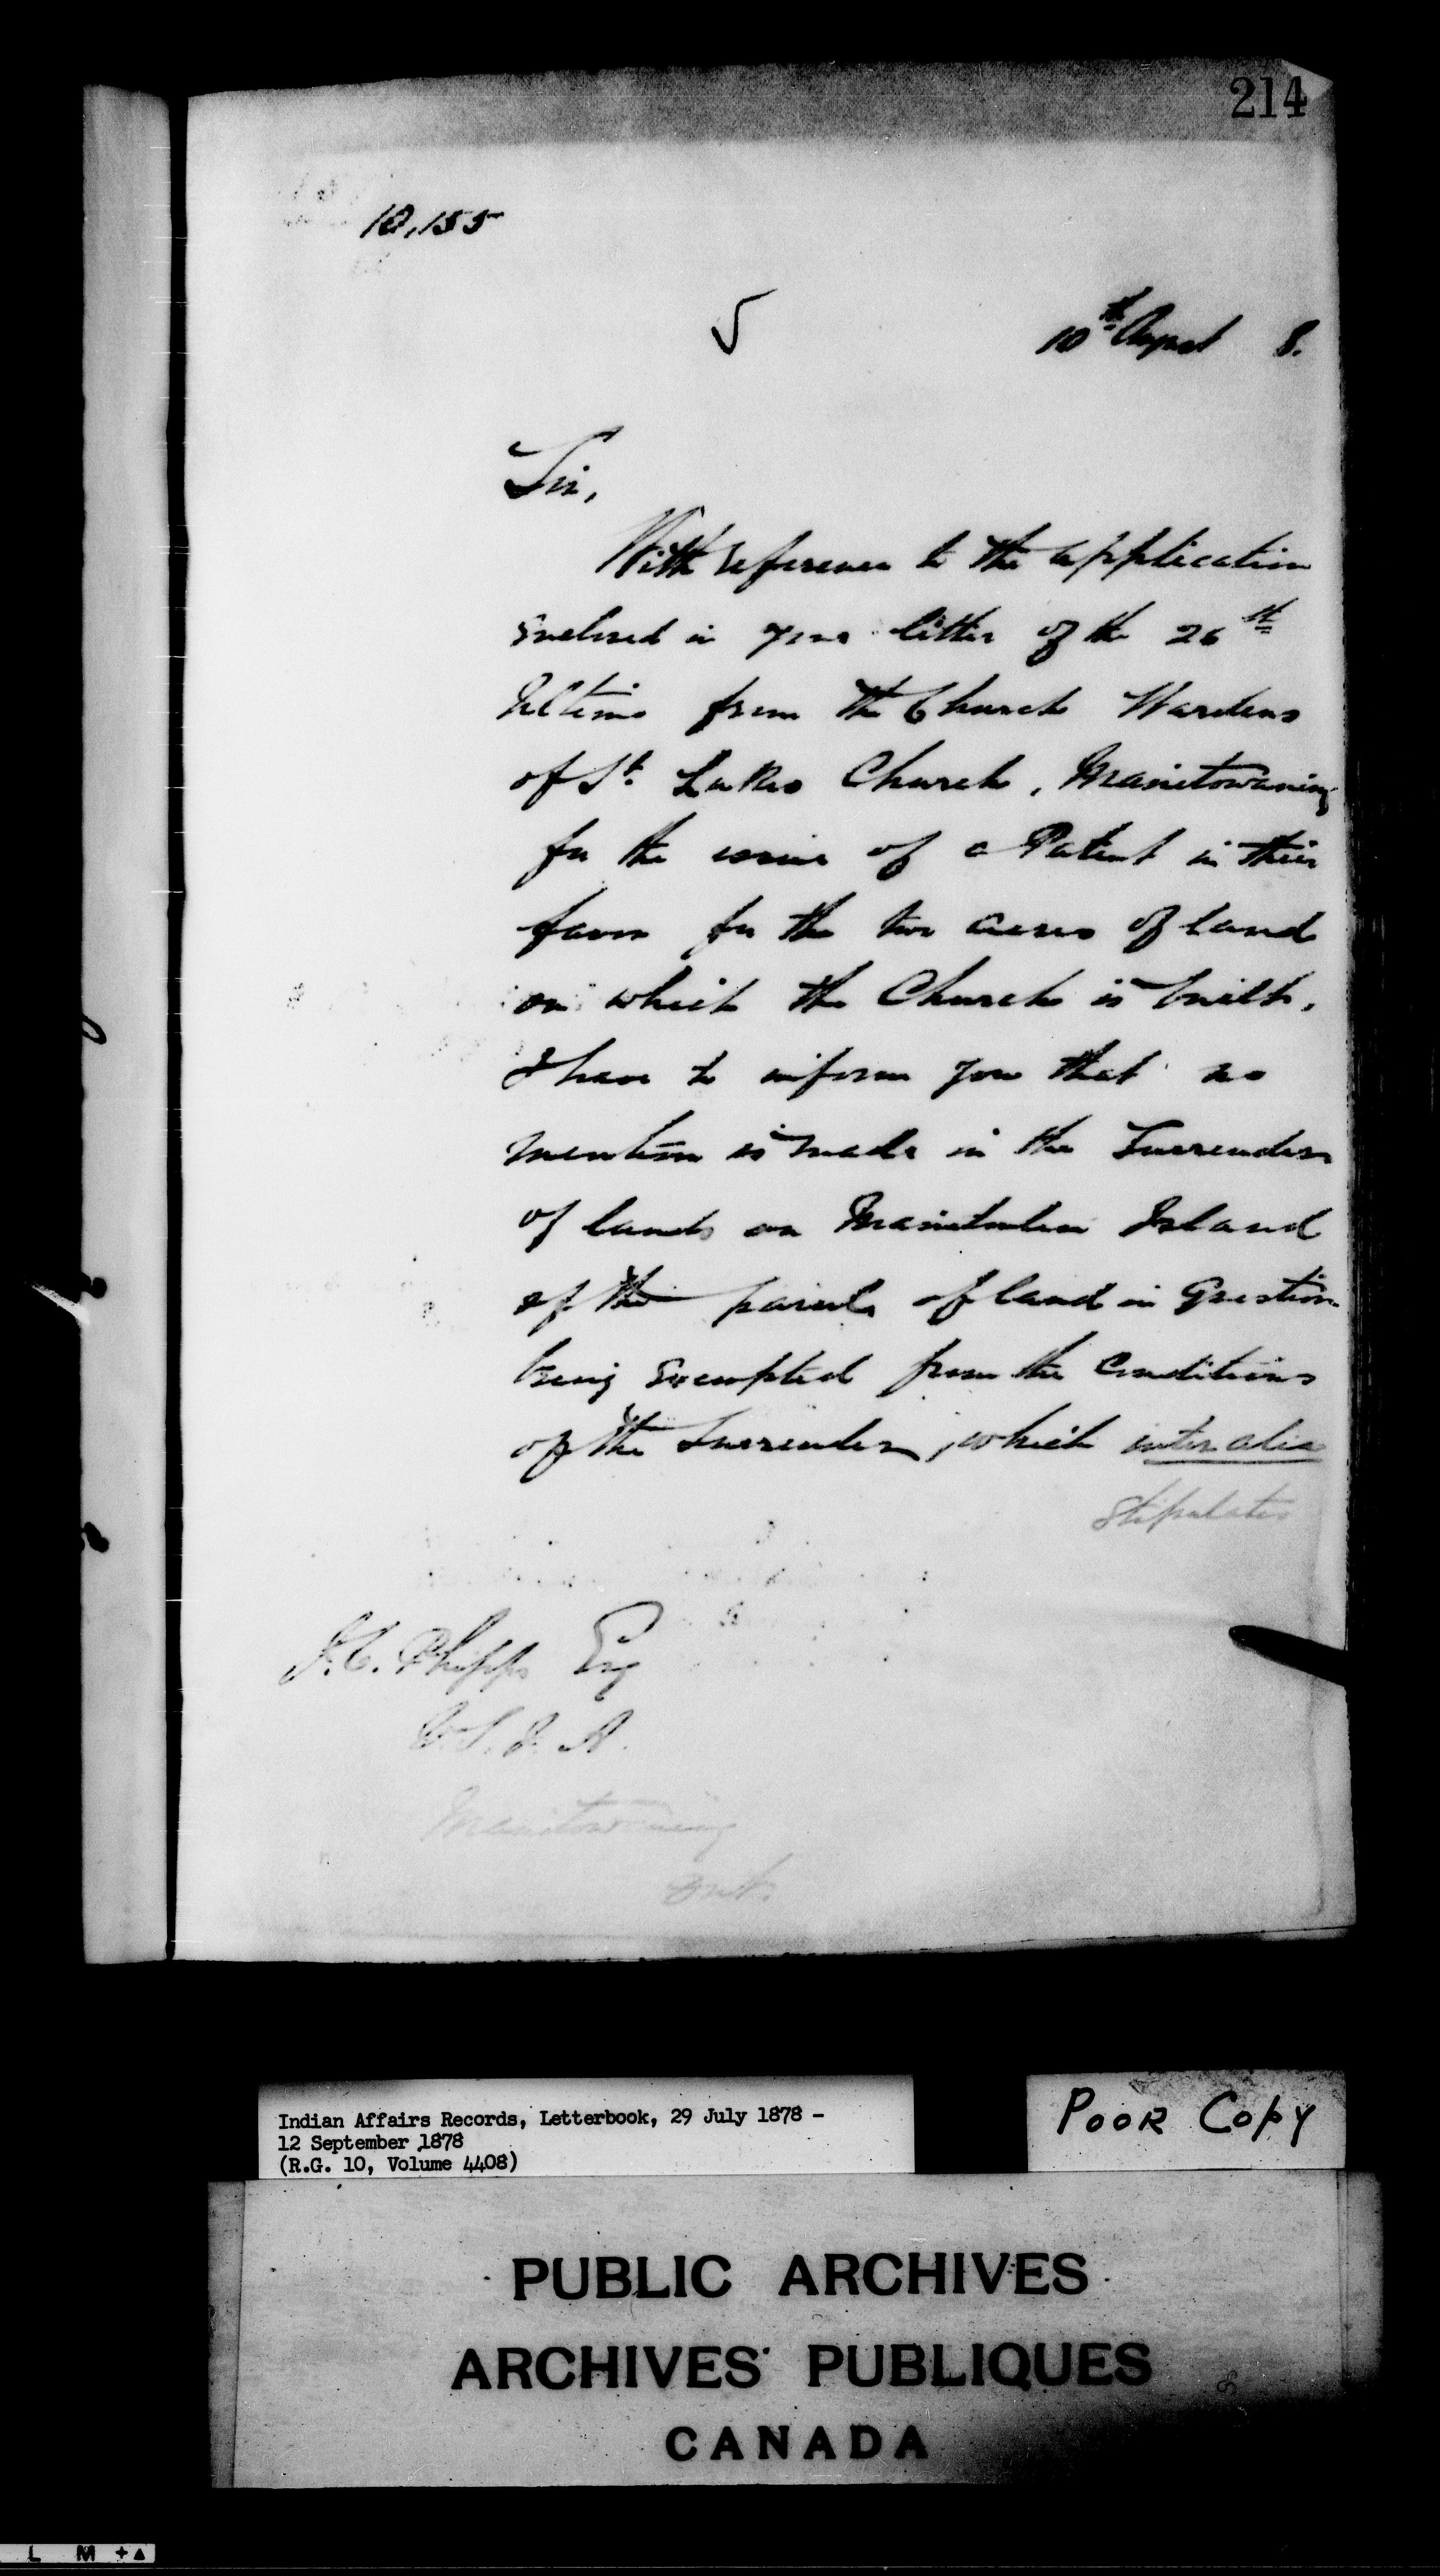 214
10,155
10th August 8.
Sir,
With reference to the application
enclosed in your letter of the 26th
Ultimo from the Church Wardens
of St. Lukes Church, Manitowaning
for the issue of a Patent in their
favor for the two acres of land
on which the Church is built,
I have to inform you that no
mention is made in the Surrender
of lands on Manitoulin Island
of the parcel of land in Question
being Exempted from the Conditions
of the Surrender, which inter alia
stipulates
J.C. Phipps Esq
V.S.I.A.
Manitowaning
Ont.
Indian Affairs Records, Letterbook, 29 July 1878 -
12 September 1878
(R.G. 10, Volume 4408)
POOR COPY
PUBLIC ARCHIVES
ARCHIVES PUBLIQUES
CANADA
L M +▲